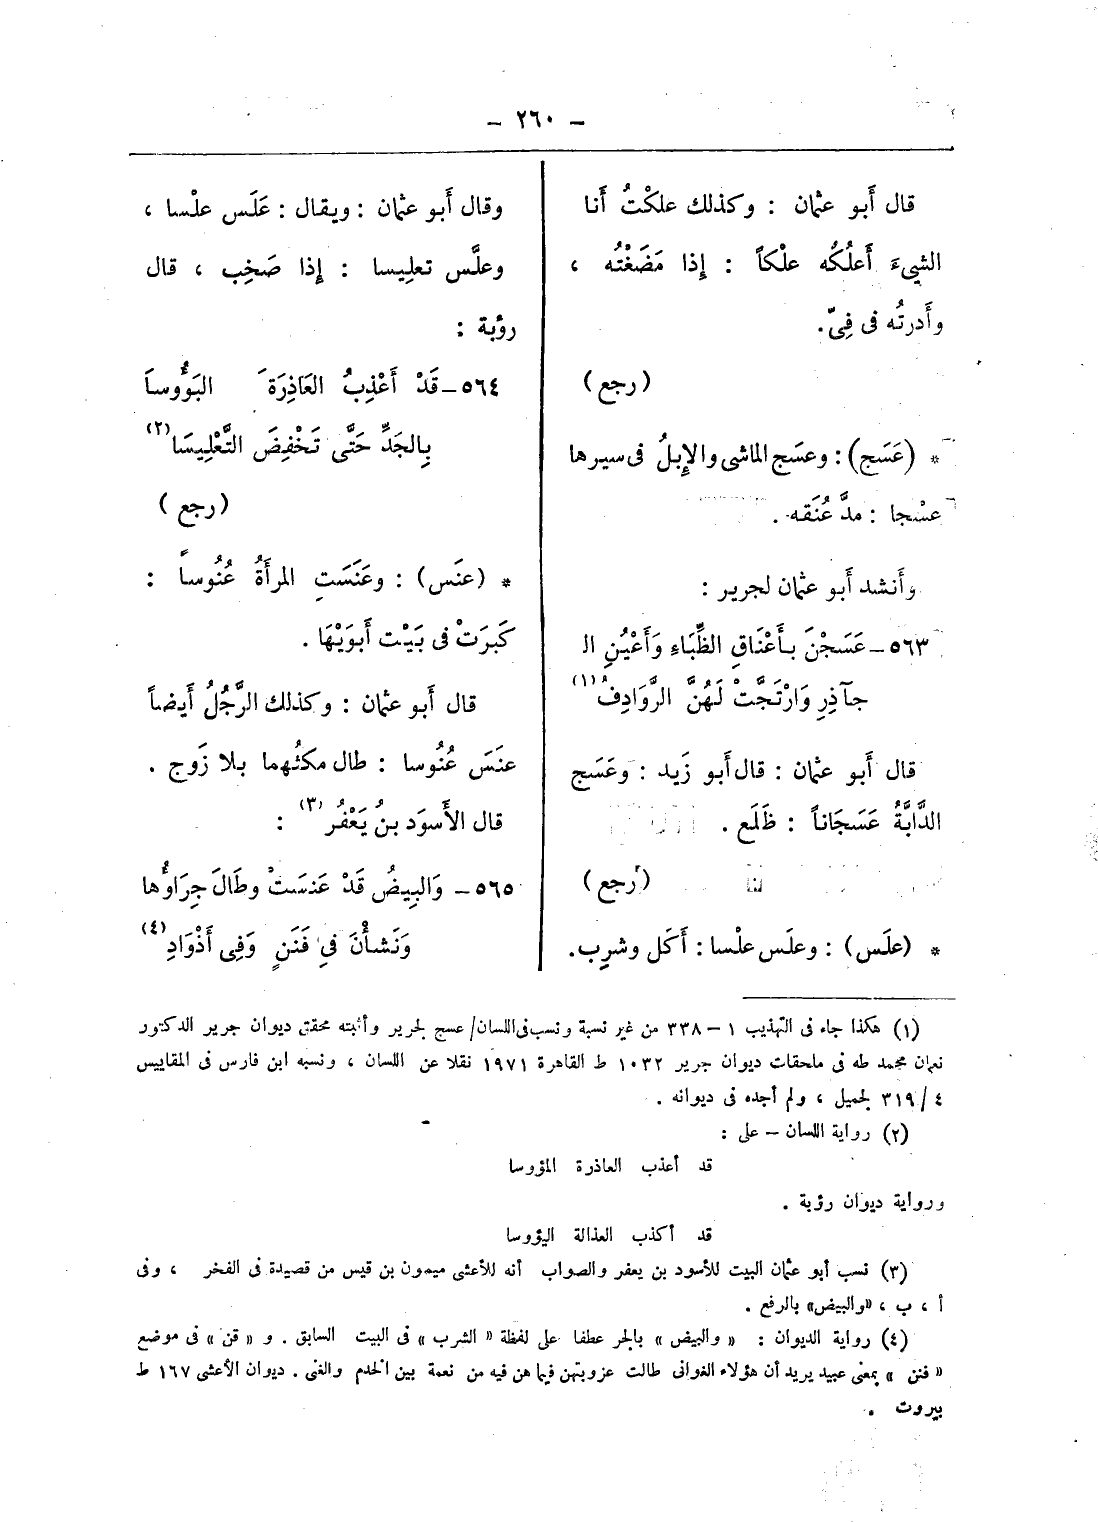 – ٢٦٠ –
قال أَبو عثمان : وكذلك علكْتُ أَنا
الشيءَ أَعلُكُه علْكاً : إذا مَضَغْتُه ،
وأَدرتُه فى فِىّ.
(رجع)
* (عَسَج) : وعسَج الماشى والإِبلُ فى سيرها
عسْجا : مدَّ عُنَقه .
وأَنشد أَبو عثمان لجرير :
٥٦٣ــ عَسَجْنَ بأَعْنَاقِ الظِّبَاءِ وَأَعْيُنِ الـ
جآذِرِ وَارْتَجَّتْ لَهُنَّ الرَّوَادِفُ (١)
قال أَبو عثمان : قال أَبو زَيد : وعَسَج
الدَّابَّةُ عَسَجَاناً : ظَلَع .
(رجع)
* (علَس) : وعلَس علْسا : أَكَل وشرِب.
وقال أَبو عثمان : ويقال : عَلَس علْسا ،
وعلَّس تعلِيسا : إِذا صَخِب ، قال
رؤبة :
٥٦٤ــ قَدْ أَعْذِبُ العَاذِرَةَ البَؤُوسَا
بِالجَدِّ حَتَّى تَخْفِضَ التَّعْلِيسَا (٢)
(رجع)
* (عنَس) : وعَنَسَتِ المرأَةُ عُنُوساً :
كَبَرَتْ فى بَيْت أَبَوَيْهَا .
قال أَبو عثمان : وكذلك الرَّجُلُ أَيضاً
عنَسَ عُنُوسا : طال مكثُهما بلا زَوج .
قال الأَسوَد بنُ يَعْفُر (٣) :
٥٦٥ــ وَالبِيضُ قَدْ عَنسَتْ وطَالَ جِرَاؤُها
وَنَشأْنَ فى فَنَنٍ وَفِى أَذْوَادِ (٤)
(١) هكذا جاء فى التهذيب ١ – ٣٣٨ من غير نسبة ونسب فى اللسان/ عسج لجرير وأثبته محقق ديوان جرير الدكتور
نعمان محمد طه فى ملحقات ديوان جرير ١٠٣٢ ط القاهرة ١٩٧١ نقلا عن اللسان ، ونسبه ابن فارس فى المقاييس
٤ / ٣١٩ لجميل ، ولم أجده فى ديوانه .
(٢) رواية اللسان – على :
قد أعذب العاذرة المؤوسا
ورواية ديوان رؤبة .
قد أكذب العذالة اليؤوسا
(٣) نسب أبو عثمان البيت للأسود بن يعفر والصواب أنه للأعشى ميمون بن قيس من قصيدة فى الفخر ، وفى
أ ، ب ، «والبيض» بالرفع .
(٤) رواية الديوان : « والبيض » بالجر عطفا على لفظة « الشرب » فى البيت السابق . و « قن » فى موضع
« فنن » بمعنى عبيد يريد أن هؤلاء الغوانى طالت عزوبتهن فيما هن فيه من نعمة بين الخدم والغنى . ديوان الأعشى ١٦٧ ط
بيروت .